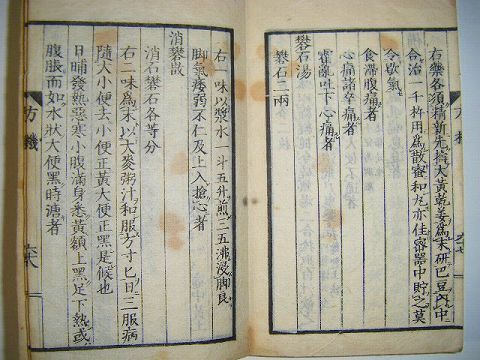 右藥各須精新先擣大黄乾姜爲末研巴豆内中
合治一千杵用爲散蜜和丸亦佳密器中貯之莫
令歇氣
食滯腹痛者
心痛諸卒痛者
霍亂吐下心痛者
礬石湯
礬石二兩
右一味以漿水一斗五升煎三五沸浸脚良
脚氣痿弱不仁及上入搶心者
消礬散
消石礬石各等分
右二味爲末以大麥粥汁和服方寸匕日三服病
隨大小便去小便正黄大便正黑是候也
日晡發熱惡寒小腹滿身悉黄額上黑足下熱或
腹脹而如水狀大便黑時溏者
方機
六十八